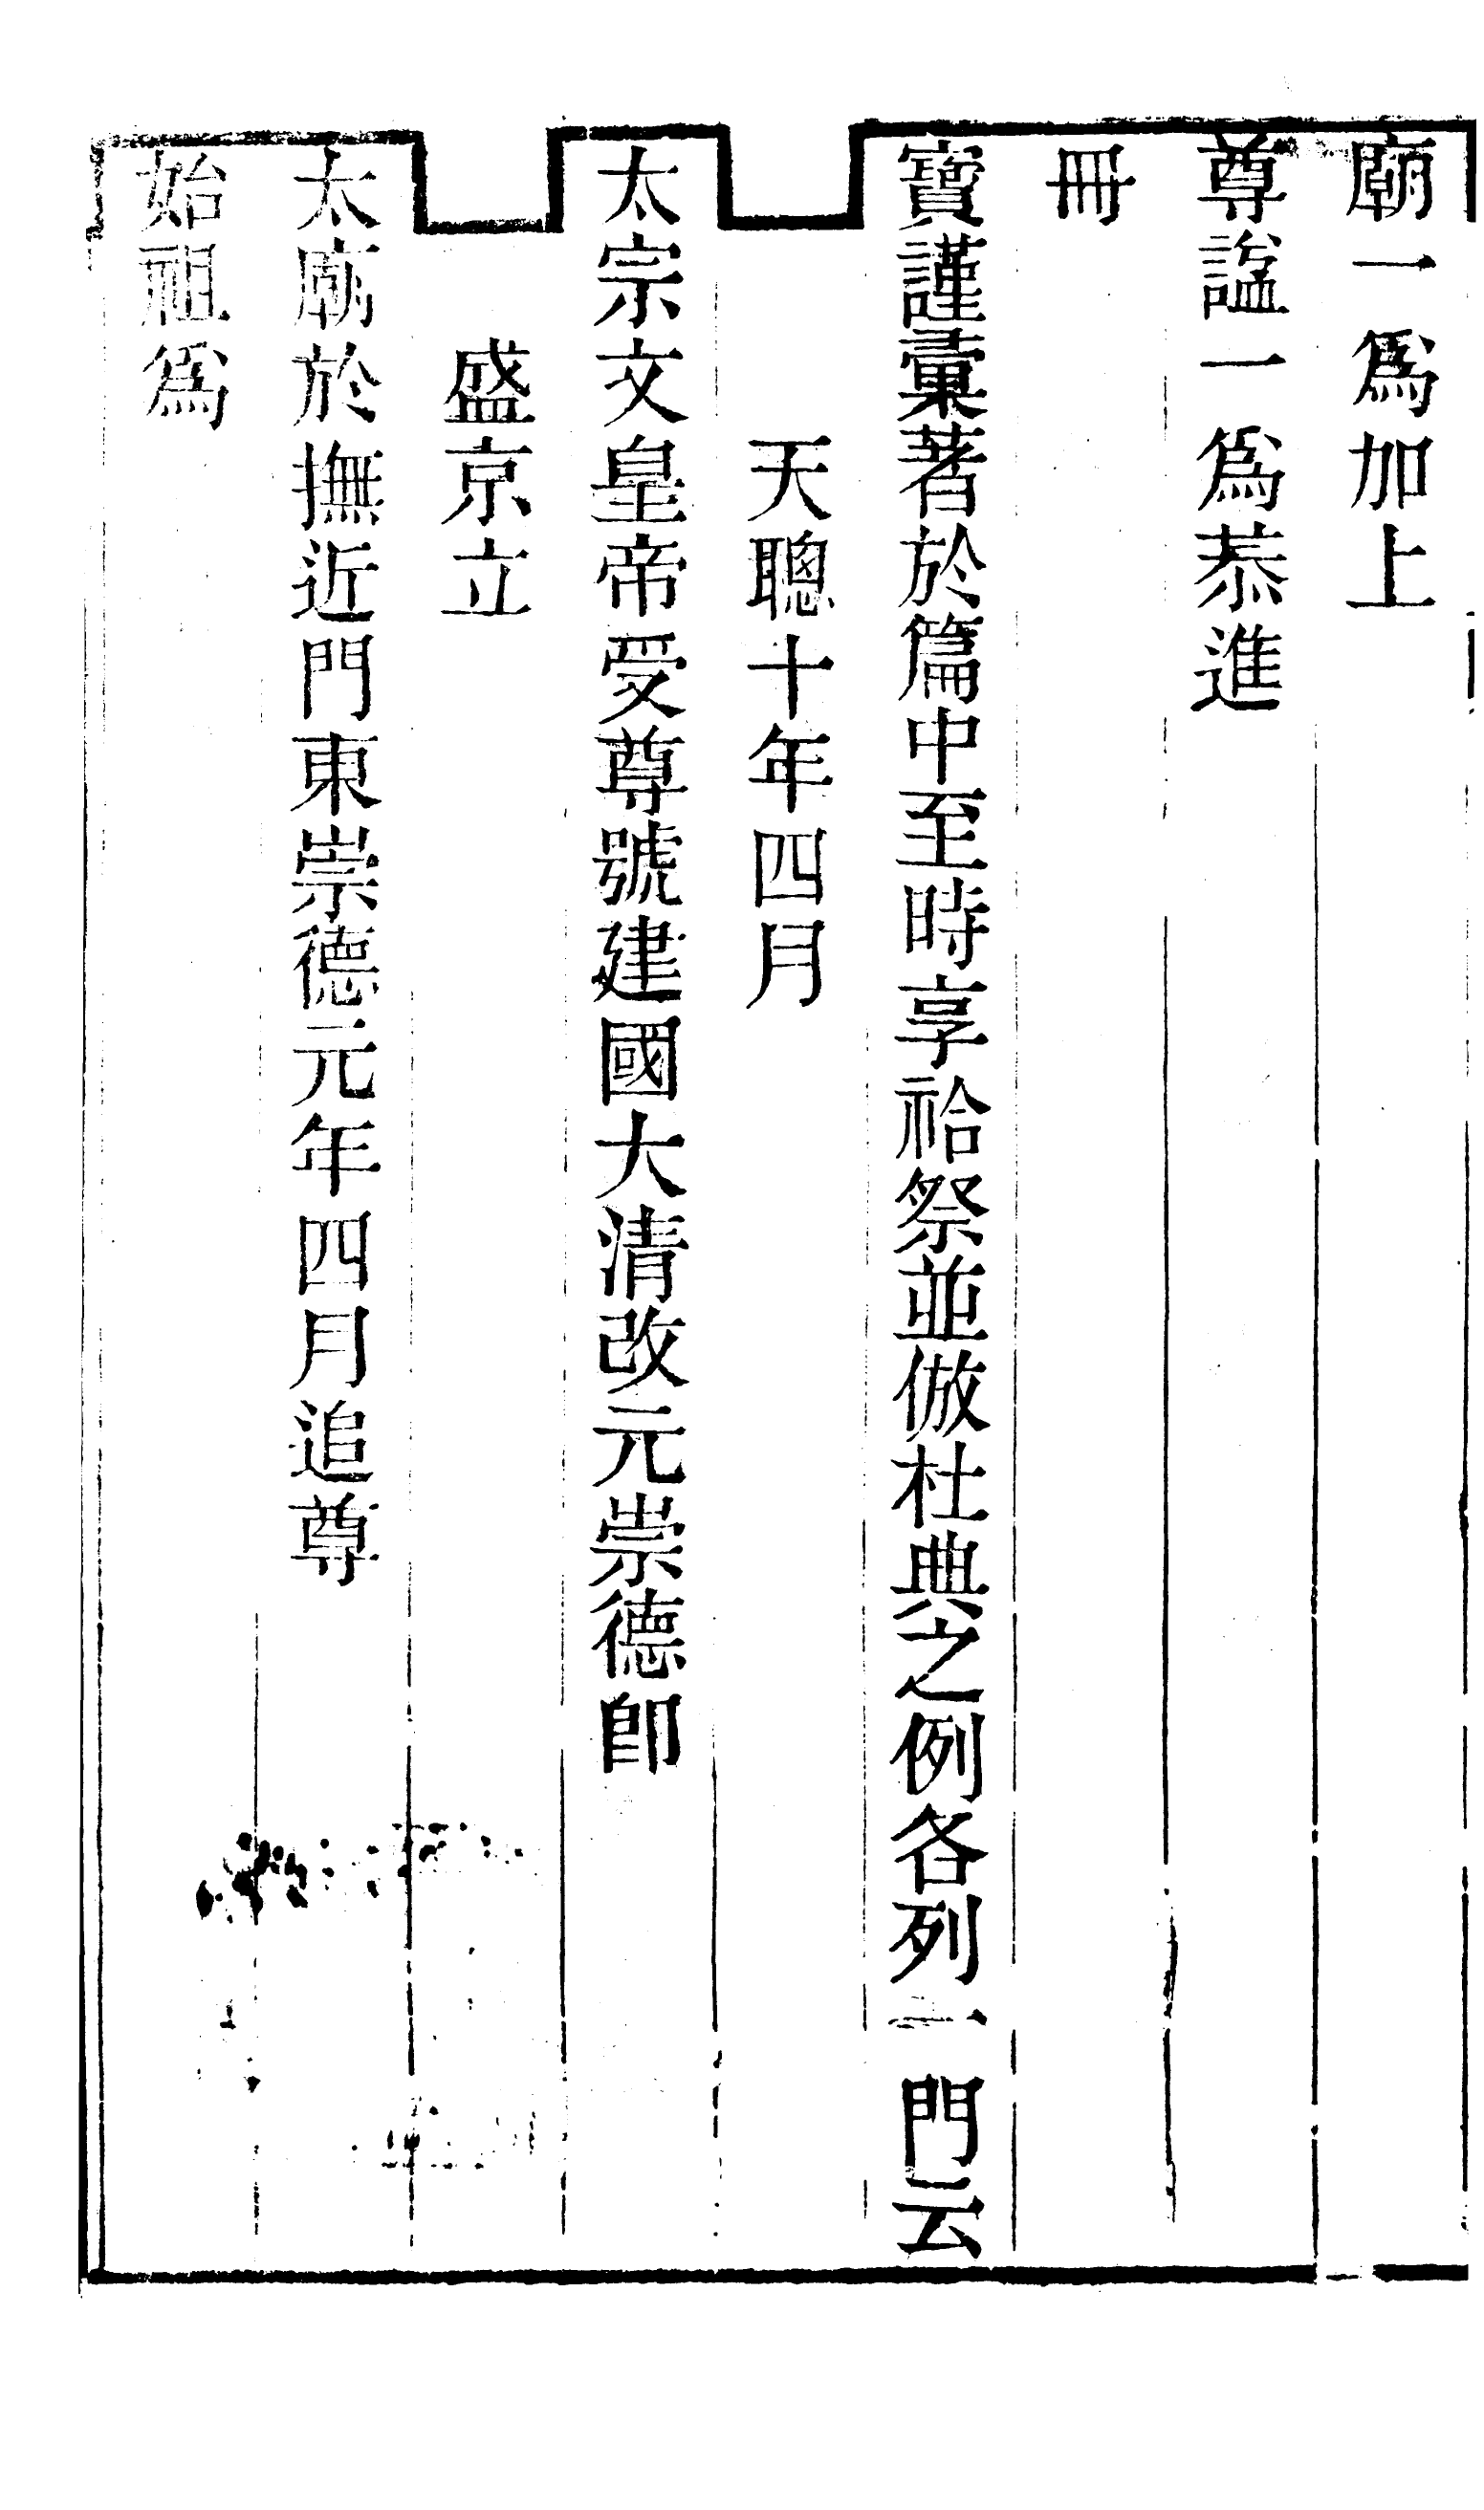 廟一爲加上
尊諡一爲恭進
冊
寶謹彙著於篇中至時享祫祭並倣杜典之例各列一門云
天聰十年四月
太宗文皇帝受尊號建國大清改元崇德卽
盛京立
太廟於撫近門東崇德元年四月追尊
始祖爲